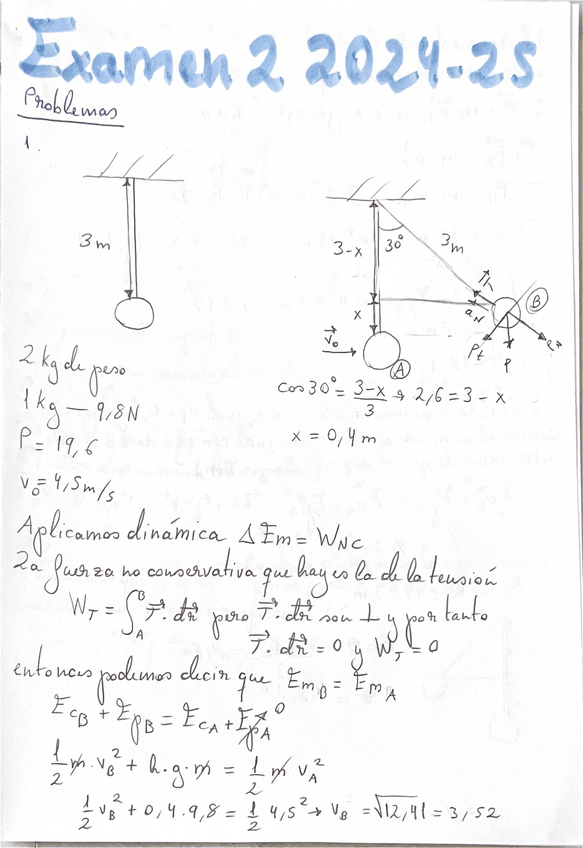 Examen 2 2024-25
Problemas
1.
3m
3-x
30°
3m
x
T
B
aN
V₀
A
Pt
P
PN
2 kg de peso
1 kg — 9,8N
P = 19,6
v₀ = 4,5m/s
cos30° = (3-x)/3 → 2,6 = 3 - x
x = 0,4 m
Aplicamos dinámica ΔEm = WNC
La fuerza no conservativa que hay es la de la tensión
WT = ∫AB T⃗. dr⃗ pero T⃗. dr⃗ son ⊥ y por tanto
T⃗. dr⃗ = 0 y WT = 0
entonces podemos decir que EmB = EmA
EcB + EpB = EcA + EpA 0
1/2 m. vB² + h.g.m = 1/2 m vA²
1/2 vB² + 0,4.9,8 = 1/2 4,5² → vB = √12,41 = 3,52